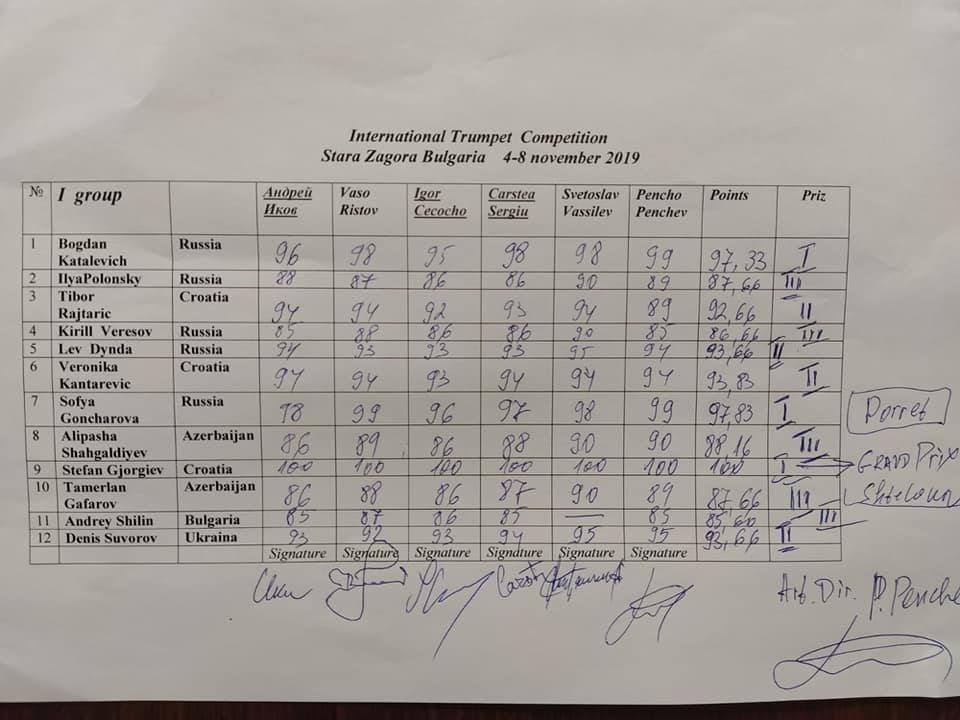 International Trumpet Competition
Stara Zagora Bulgaria 4-8 november 2019
№ I group Андрей Иков Vaso Ristov Igor Cecocho Carstea Sergiu Svetoslav Vassilev Pencho Penchev Points Priz
1 Bogdan Katalevich Russia 96 98 95 98 98 99 97,33 I
2 IlyaPolonsky Russia 88 87 86 86 90 89 87,66 III
3 Tibor Rajtaric Croatia 94 94 92 93 94 89 92,66 II
4 Kirill Veresov Russia 85 88 86 86 90 85 86,66 III
5 Lev Dynda Russia 94 93 93 93 95 94 93,66 II
6 Veronika Kantarevic Croatia 94 94 93 94 94 94 93,83 II
7 Sofya Goncharova Russia 98 99 96 97 98 99 97,83 I
8 Alipasha Shahgaldiyev Azerbaijan 86 89 86 88 90 90 88,16 III
9 Stefan Gjorgiev Croatia 100 100 100 100 100 100 100 I GRAND Prix
10 Tamerlan Gafarov Azerbaijan 86 88 86 87 90 89 87,66 III
11 Andrey Shilin Bulgaria 85 87 86 85 — 85 85,60 III
12 Denis Suvorov Ukraina 93 92 93 94 95 95 93,66 II
Signature Signature Signature Signature Signature Signature
Art. Dir. P. Penche